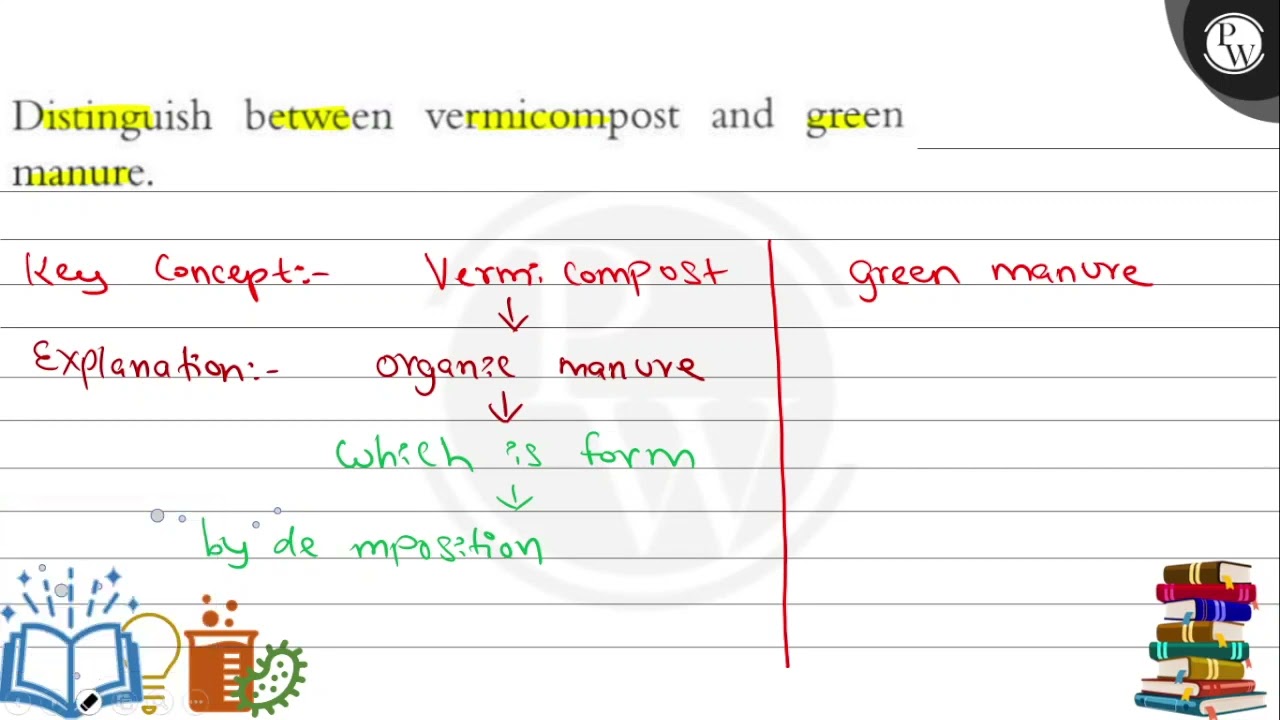 PW
Distinguish between vermicompost and green
manure.
Key Concept:- Vermi compost green manure
Explanation:- organic manure
which is form
by de mposition
PW